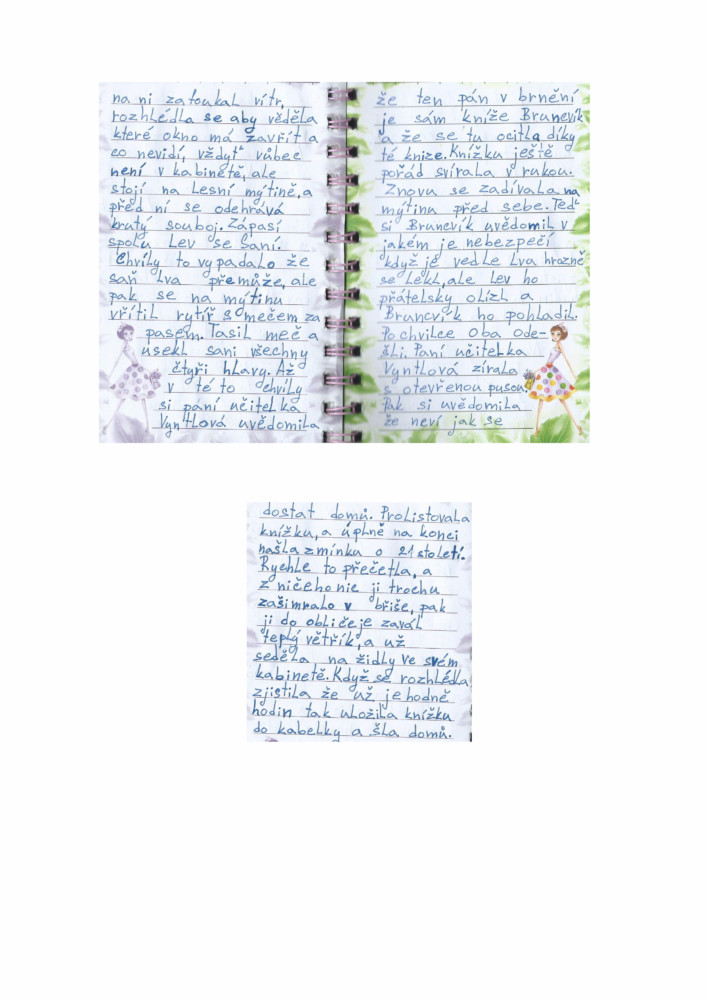 na ni zafoukal vítr,
rozhlédla se aby věděla
které okno má zavřít a
co nevidí, vždyť vůbec
není v kabinetě, ale
stojí na lesní mýtině, a
před ní se odehrává
krutý souboj. Zápasí
spolu Lev se Saní.
Chvíly to vypadalo že
saň lva přemůže, ale
pak se na mýtinu
vřítil rytíř s mečem za
pasem. Tasil meč a
usekl sani všechny
čtyři hlavy. Až
v té to chvíly
si paní učitelka
Vyntlová uvědomila
že ten pán v brnění
je sám kníže Bruncvík
a že se tu ocitla díky
té knize. Knížku ještě
pořád svírala v rukou.
Znovu se zadívala na
mýtinu před sebe. Teď
si Bruncvík uvědomil v
jakém je nebezpečí
když je vedle lva hrozně
se lekl, ale lev ho
přátelsky olízl a
Bruncvík ho pohladil.
Po chvilce oba ode-
šli. Paní učitelka
Vyntlová zírala
s otevřenou pusou.
Pak si uvědomila
že neví jak se
dostat domů. Prolistovala
knížku, a úplně na konci
našla zmínku o 21 století.
Rychle to přečetla, a
z ničeho nic ji trochu
zašimralo v břiše, pak
ji do obličeje zavál
teplý větřík, a už
seděla na židly ve svém
kabinetě. Když se rozhlédla
zjistila že už je hodně
hodin tak uložila knížku
do kabelky a šla domů.